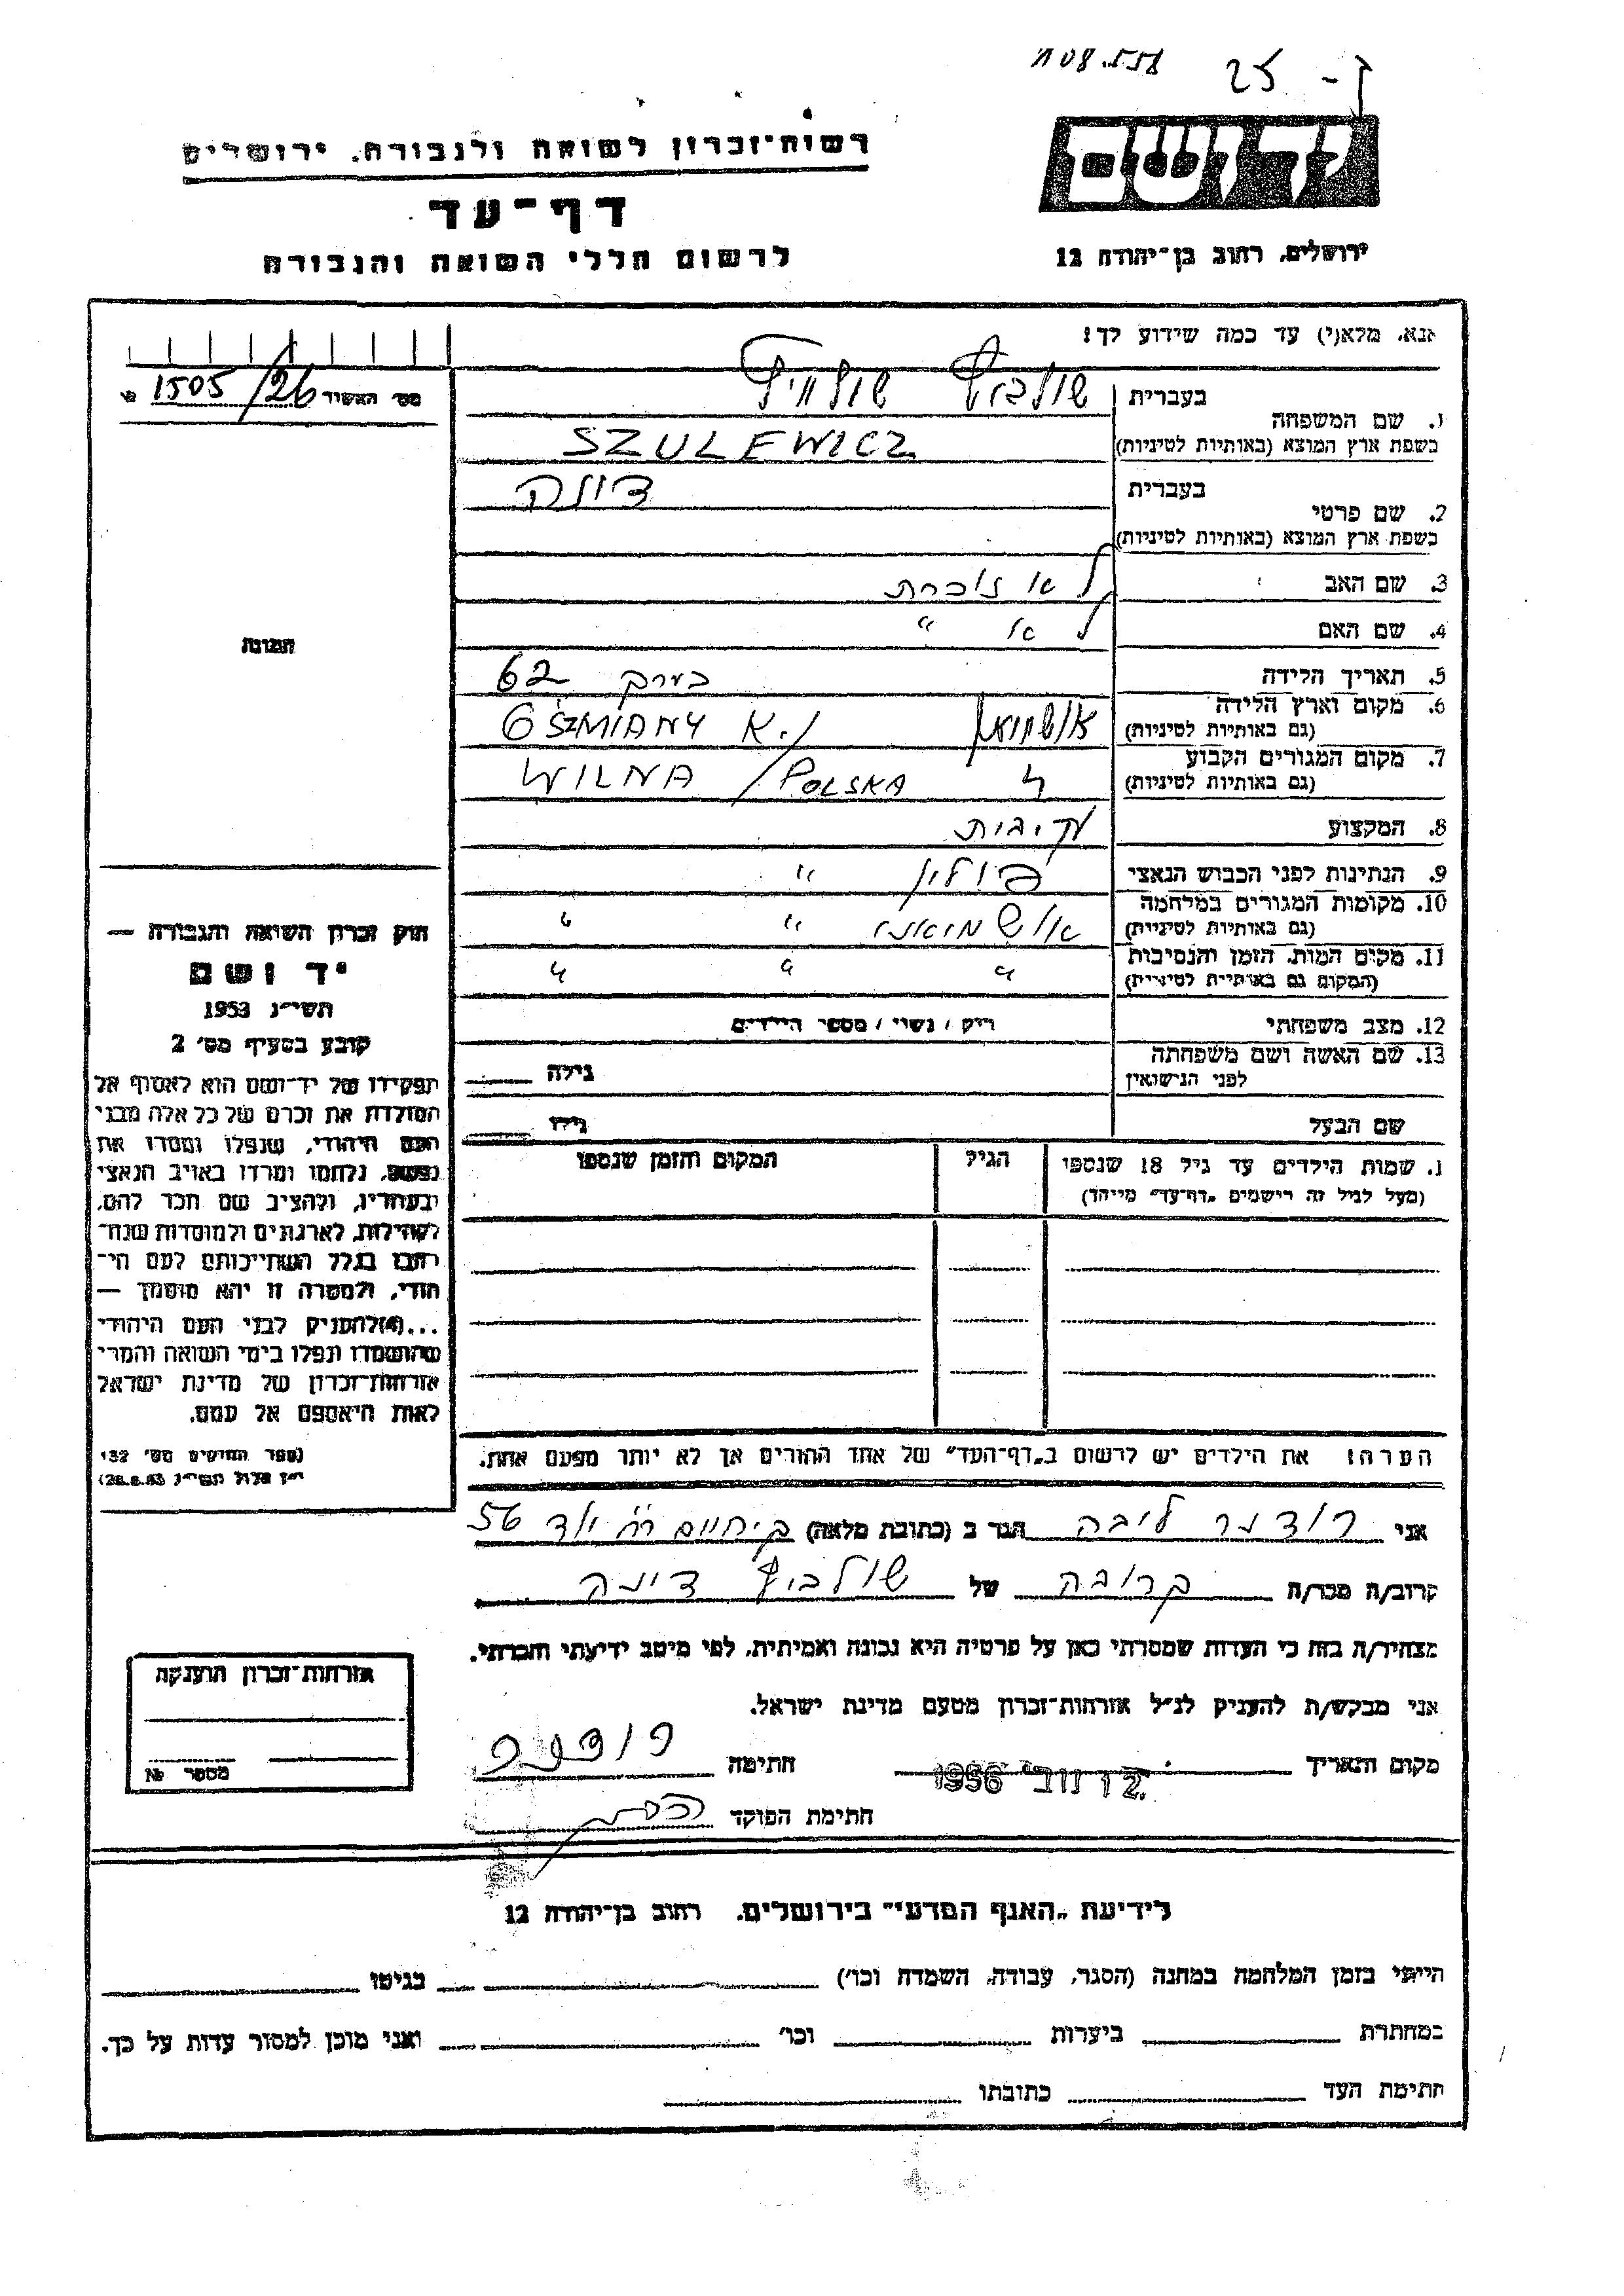 ד - 25
רשות־זכרון לשואה ולגבורה, ירושלים
יד ושם
דף־עד
לרשום חללי השואה והגבורה
ירושלים, רחוב בן־יהודה 12
אנא, מלא(י) עד כמה שידוע לך!
מס׳ האשיר 1505/26 №
1. שם המשפחה
בעברית שולביץ
בשפת ארץ המוצא (באותיות לטיניות) SZULEWICZ
2. שם פרטי
בעברית דינה
בשפת ארץ המוצא (באותיות לטיניות)
3. שם האב לא זוכרת
4. שם האם לא "
5. תאריך הלידה בערך 62
6. מקום וארץ הלידה OSZMIANY
(גם באותיות לטיניות)
7. מקום המגורים הקבוע WILNA / POLSKA
(גם באותיות לטיניות)
8. המקצוע
9. הנתינות לפני הכבוש הנאצי פולין "
10. מקומות המגורים במלחמה אושמיאני " "
(גם באותיות לטיניות)
11. מקום המות, הזמן והנסיבות " " "
(המקום גם באותיות לטיניות)
12. מצב משפחתי רוק / נשוי / מספר הילדים
13. שם האשה ושם משפחתה גילה
לפני הנישואין
שם הבעל גילו
התמונה
חוק זכרון השואה והגבורה —
יד ושם
תשי״ג 1953
קובע בסעיף מס׳ 2
תפקידו של יד־ושם הוא לאסוף אל
המולדת את זכרם של כל אלה מבני
העם היהודי, שנפלו ומסרו את
נפשם, נלחמו ומרדו באויב הנאצי
ובעוזריו, ולהציב שם וזכר להם,
לקהילות, לארגונים ולמוסדות שנח־
רבו בגלל השתייכותם לעם הי־
הודי, ולמטרה זו יהא מוסמך —
...(4)להעניק לבני העם היהודי
שהושמדו ונפלו בימי השואה והמרי
אזרחות־זכרון של מדינת ישראל
לאות היאספם אל עמם.
(ספר החוקים מס׳ 132
י״ז אלול תשי״ג 28.8.53)
1. שמות הילדים עד גיל 18 שנספו הגיל המקום והזמן שנספו
(מעל לגיל זה רישמים „דף־עד״ מייחד)
הערה: את הילדים יש לרשום ב„דף־העד״ של אחד ההורים אך לא יותר מפעם אחת.
אני רודנר ליבה הגר ב (כתובת מלאה) ק. חיים 56
קרוב/ה מכר/ה קרובה של שולביץ דינה
מצהיר/ה בזה כי העדות שמסרתי כאן על פרטיה היא נכונה ואמיתית, לפי מיטב ידיעתי והכרתי.
אני מבקש/ת להעניק לנ״ל אזרחות־זכרון מטעם מדינת ישראל.
מקום ותאריך 12 נוב׳ 1956 חתימה
חתימת הפוקד
אזרחות־זכרון הוענקה
מספר №
לידיעת „האגף המדעי״ בירושלים, רחוב בן־יהודה 12
הייתי בזמן המלחמה במחנה (הסגר, עבודה, השמדה וכו׳) בגיטו
במחתרת ביערות וכו׳ ואני מוכן למסור עדות על כך.
חתימת העד כתובתו